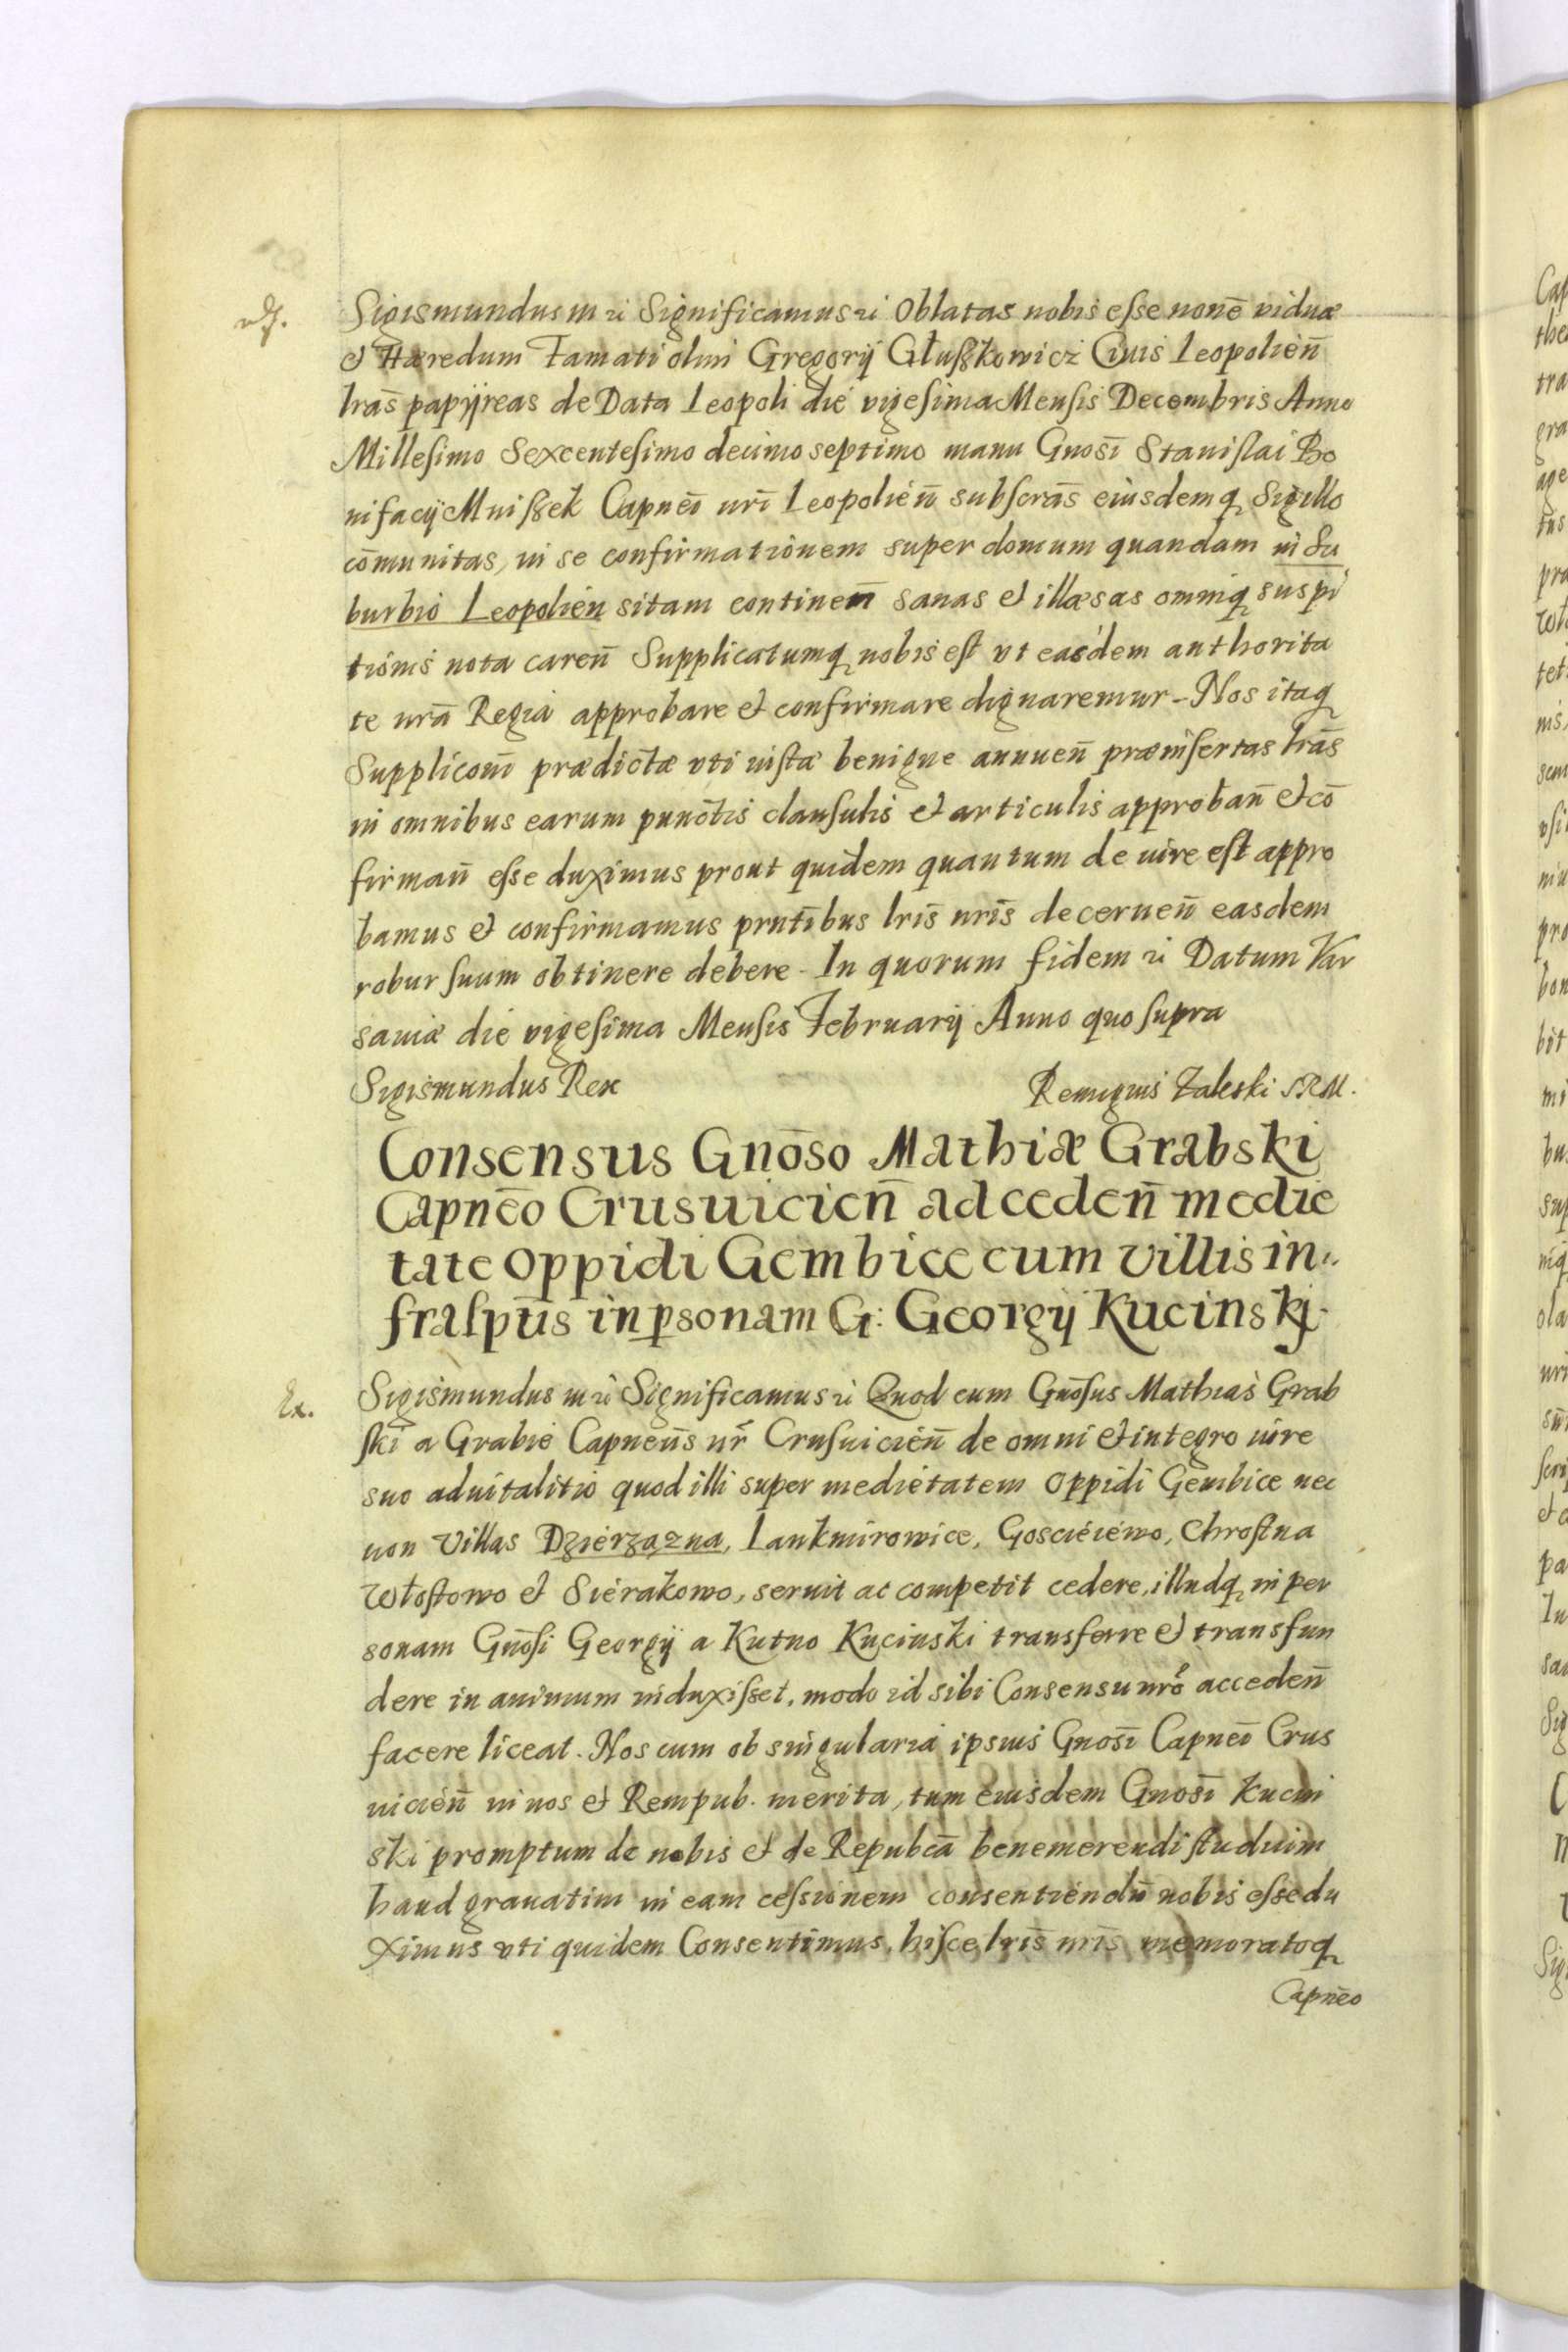 Sigismundus III ꝛc Significamus ꝛc Oblatas nobis esse noīē viduæ
et Hæredum Famati olim Gregorij Głuszkowicz Civis Leopolień
lrās papyreas de Data Leopoli die vigesima Mensis Decembris Anno
Millesimo Sexcentesimo decimo septimo manu Gnosī Stanislai Bo
nifacij Mniszek Capneī nrī Leopolień subscrās eiusdemq̨ Sigillo
cōmunitas, in se confirmationem super domum quandam in Su
burbio Leopolień sitam contineñ sanas et illæsas omniq̨ suspi
tionis nota careñ Supplicatumq̨ nobis est vt easdem authorita
te nrā Regia approbare et confirmare dignaremur - Nos itaq̨
Supplicōni prædictæ vti iustæ benigne annueñ præinsertas lrās
in omnibus earum punctis clausulis et articulis approbañ et cō
firmañ esse duximus prout quidem quantum de iure est appro
bamus et confirmamus prntībus lrīs nrīs decerneñ easdem
robur suum obtinere debere - In quorum fidem ꝛc Datum Var
saviæ die vigesima Mensis Februarij Anno quo supra
Sigismundus Rex Remigius Zaleski SRM.
Consensus Gnōso Mathiæ Grabski
Capnēo Crusuicieñ ad cedeñ medie
tate oppidi Gembice cum villis in
frascptīs in psonam G: Georgij Kucinskj.
Ex. Sigismundus III ꝛc Significamus ꝛc Quod cum Gnōsus Mathias Grab
ski a Grabie Capneūs nr̄ Crusuicieñ de omni et integro iure
suo aduitalitio quod illi super medietatem Oppidi Gembice nec
non Villas Dzierzązna, Lankmirowice, Gosciéiéwo, Chrostna
Włostowo et Siérakowo, seruit ac competit cedere, illudq̨ in per
sonam Gnōsi Georgij a Kutno Kucinski transferre et transfun
dere in animum induxisset, modo id sibi Consensu nrō accedeñ
facere liceat. Nos cum ob singularia ipsius Gnosī Capneī Crus
uicień in nos et Rempub. merita, tum eiusdem Gnosī Kucin
ski promptum de nobis et de Repubcā benemerendi studium
haud grauatim in eam cessionem consentiendū nobis esse du
ximus vti quidem Consentimus, hisce lrīs nrīs memoratoq̨
Capnēo